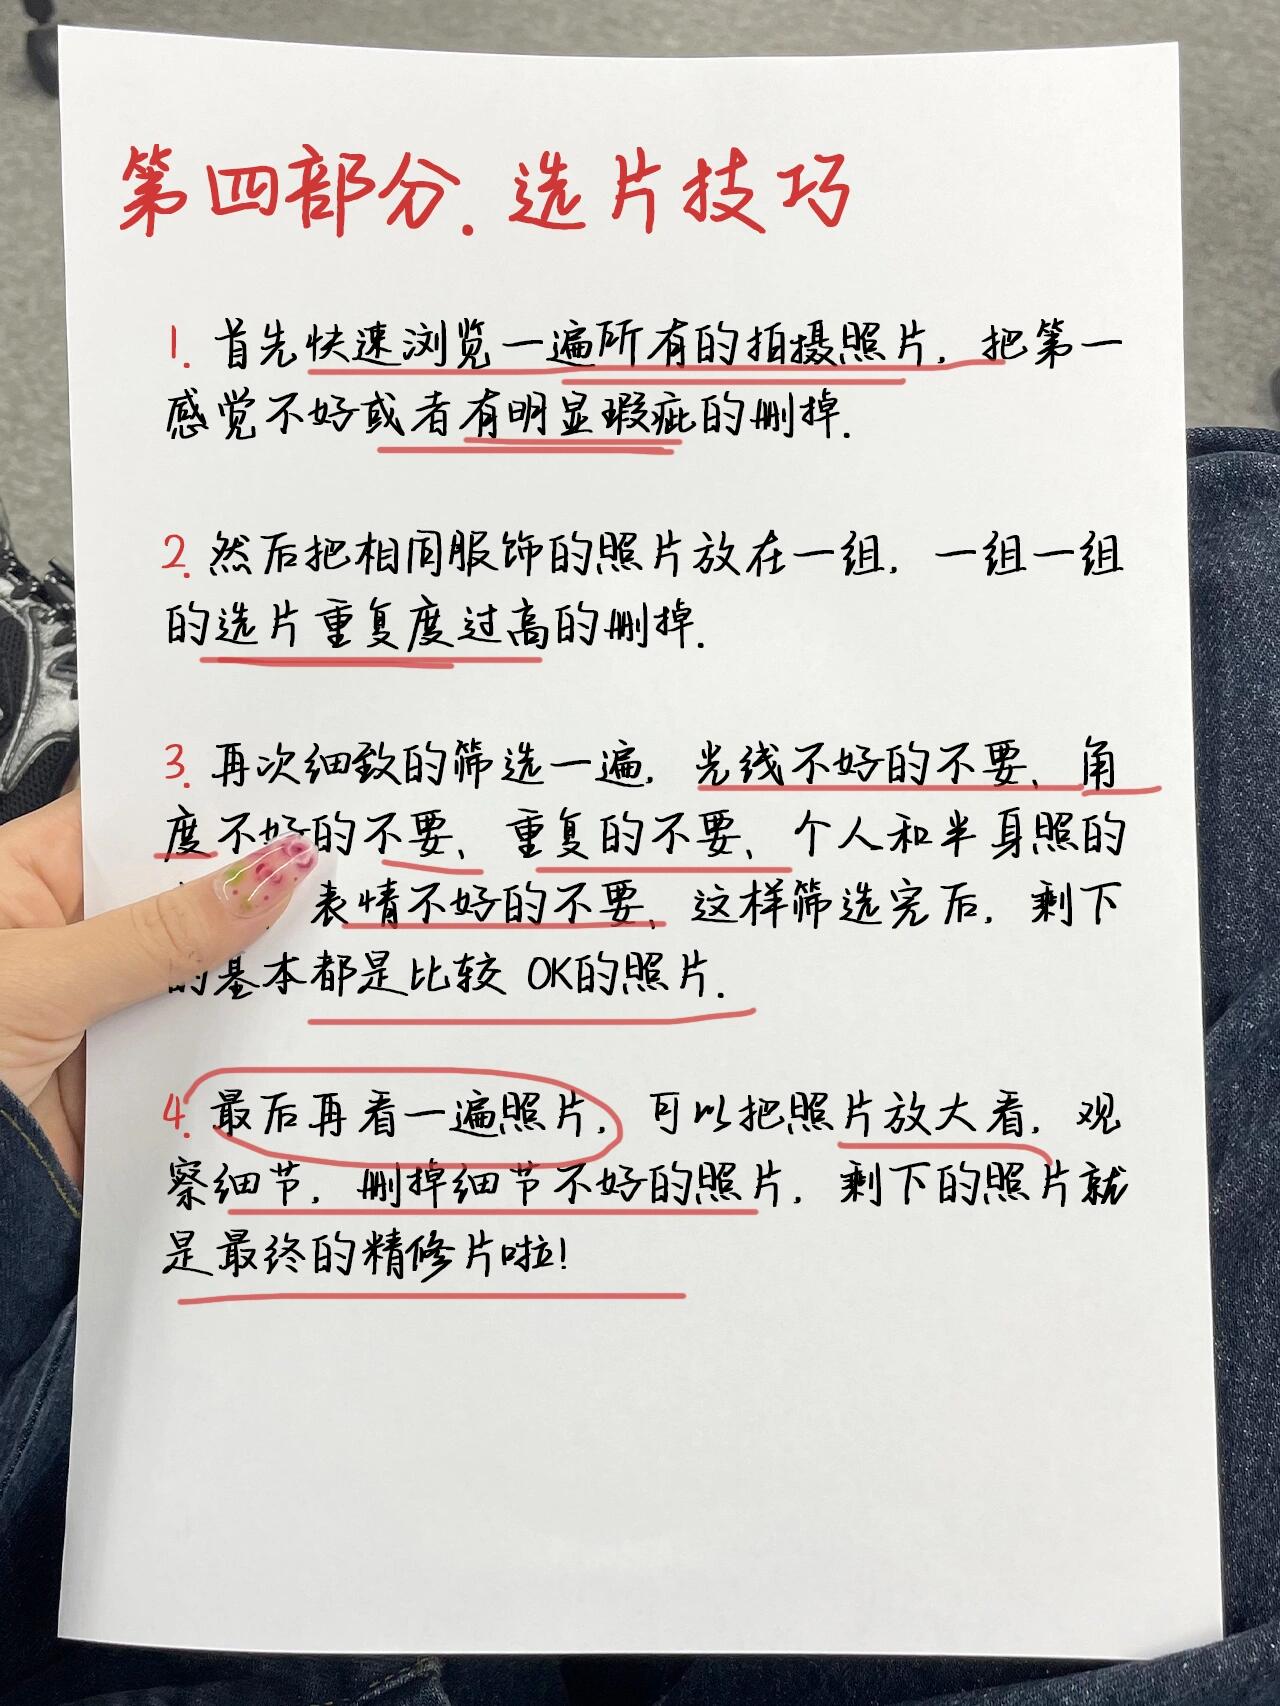 第四部分.选片技巧
1. 首先快速浏览一遍所有的拍摄照片，把第一
感觉不好或者有明显瑕疵的删掉.
2. 然后把相同服饰的照片放在一组，一组一组
的选片重复度过高的删掉.
3. 再次细致的筛选一遍，光线不好的不要、角
度不好的不要、重复的不要、个人和半身照的
表情不好的不要、这样筛选完后，剩下
的基本都是比较OK的照片.
4. 最后再看一遍照片，可以把照片放大看，观
察细节，删掉细节不好的照片，剩下的照片就
是最终的精修片啦！